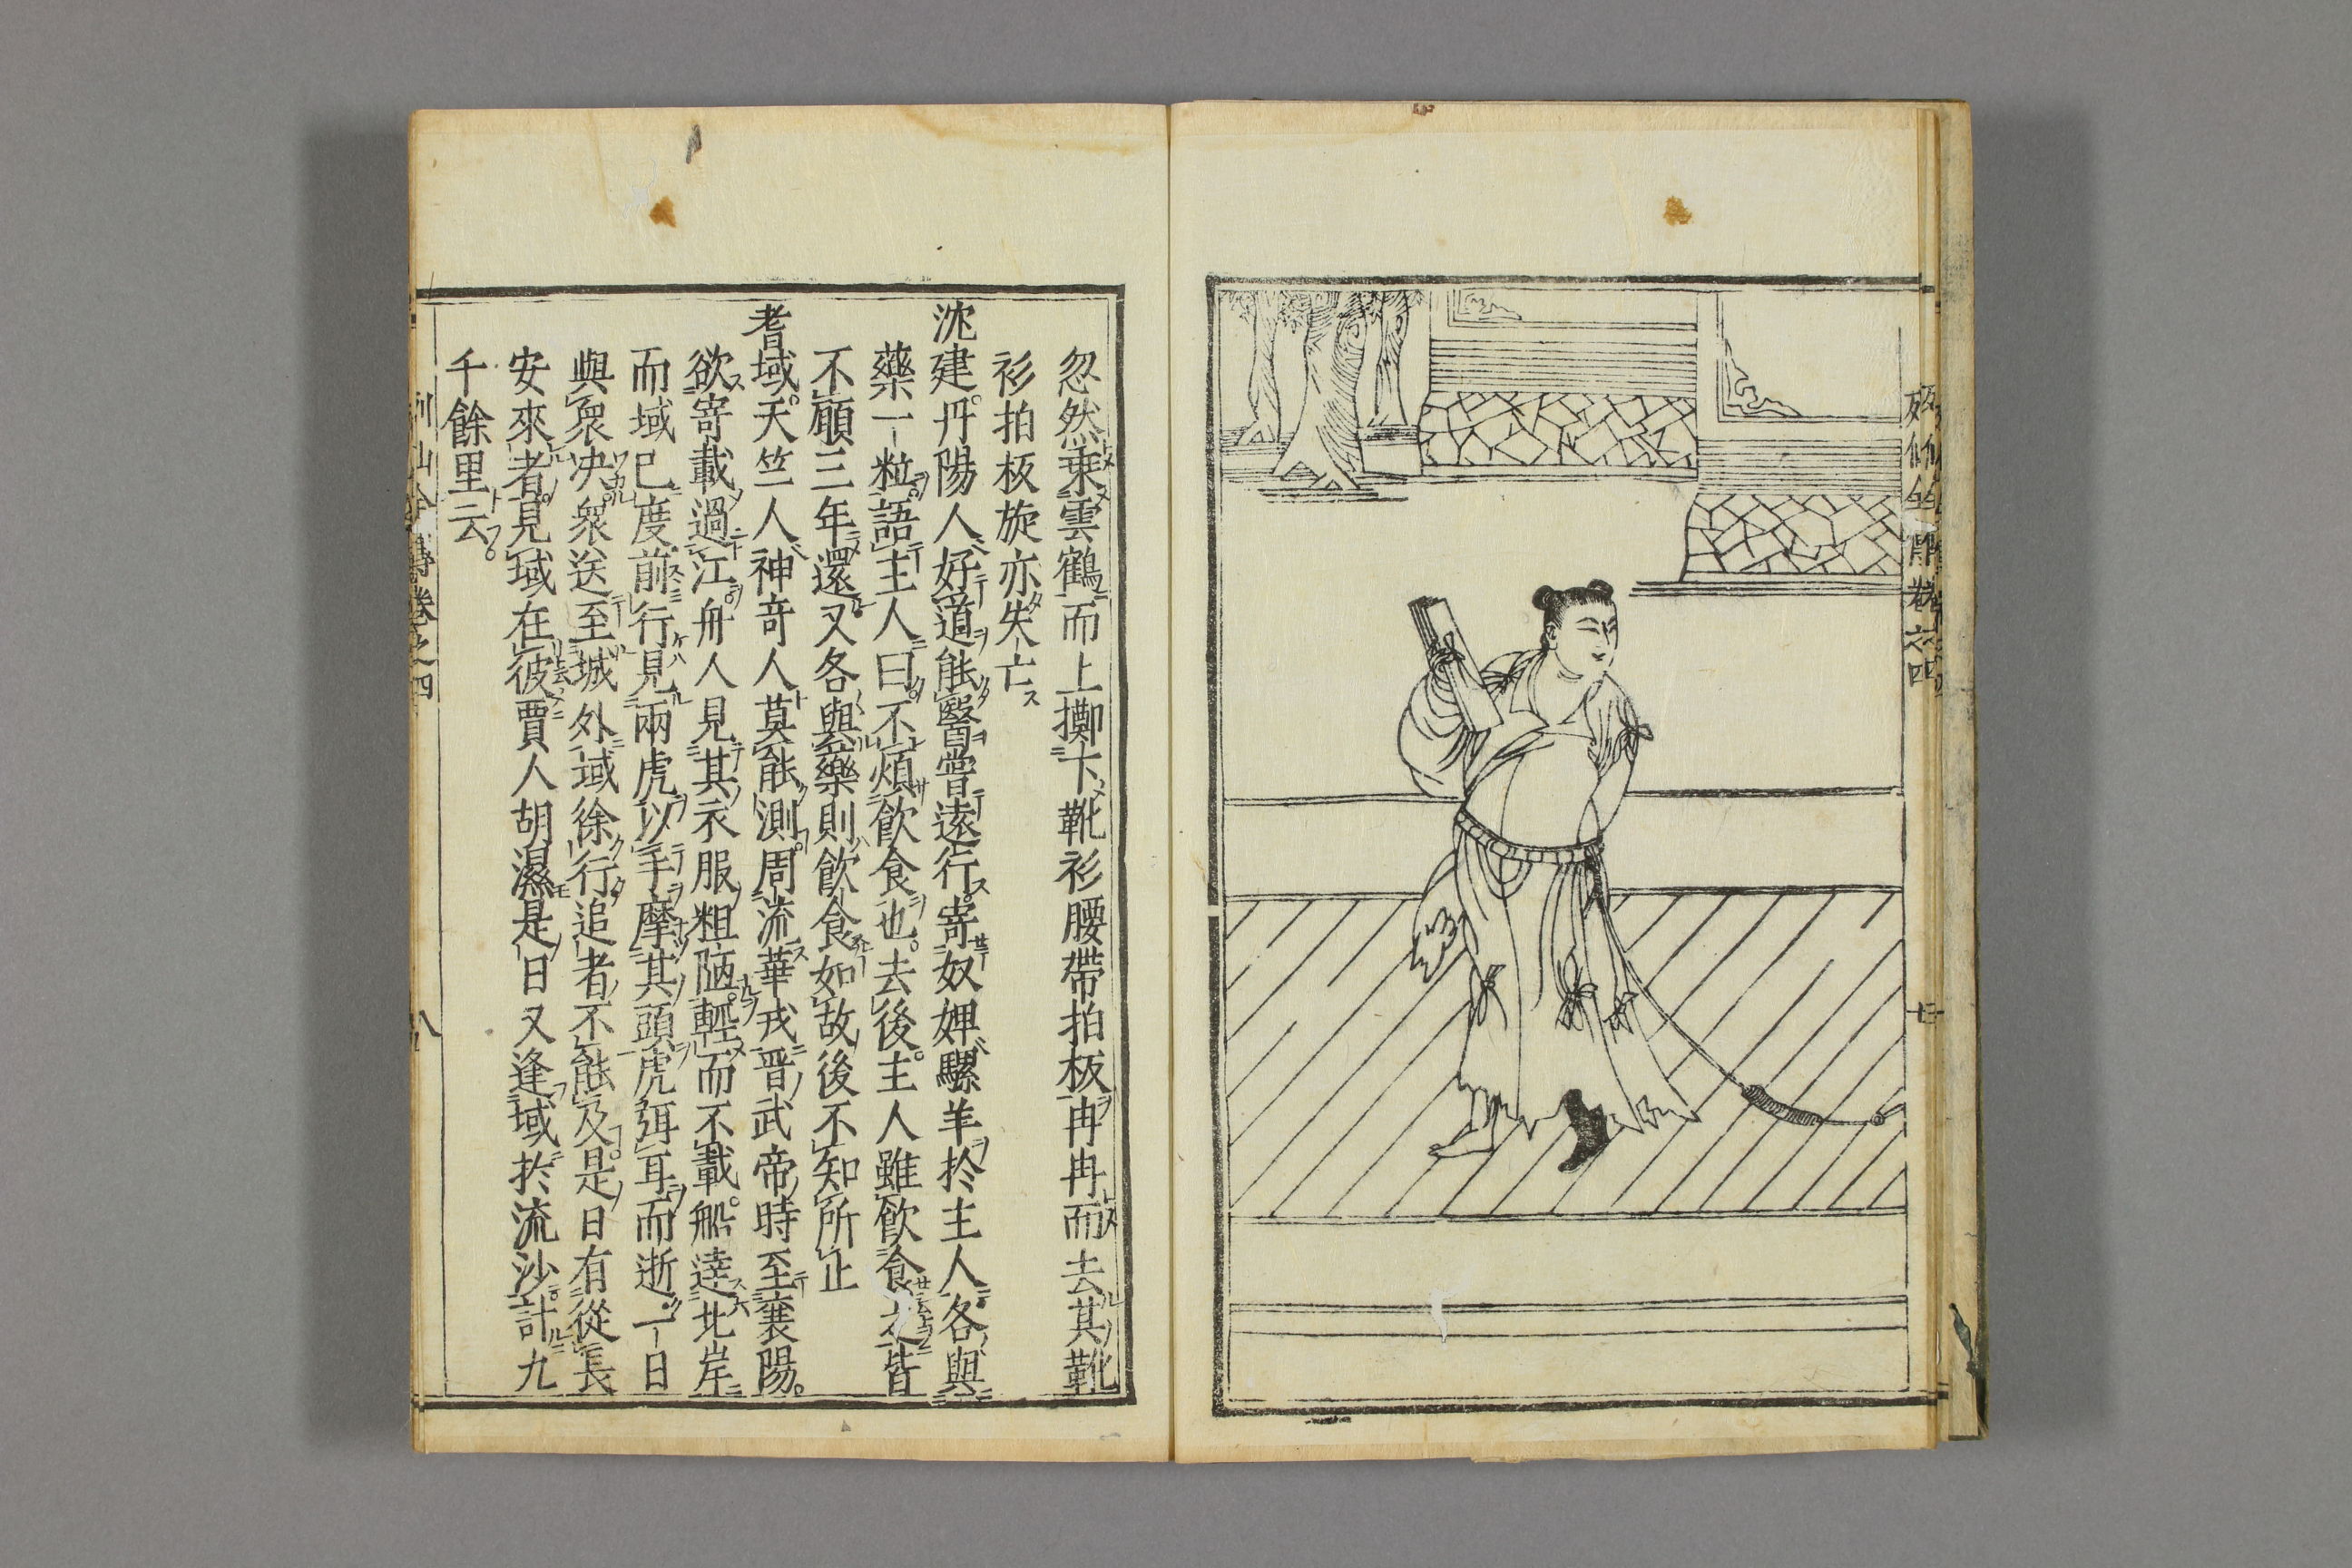 忽然乗雲鶴而上擲下靴衫腰帶拍板冉冉而去其靴
衫拍板旋亦失亡
沈建丹陽人好道能醫嘗遠行寄奴婢騾羊於主人各與
藥一粒語主人曰不煩飲食也去後主人雖飲食之皆
不顧三年還又各與藥則飲食如故後不知所止
耆域天竺人神奇人莫能測周流華戎晋武帝時至襄陽
欲寄載過江舟人見其衣服粗陋輕而不載船達北岸
而域已度前行見兩虎以手摩其頭虎弭耳而逝一日
與衆决衆送至城外域徐行追者不能及是日有從長
安來者見域在彼賈人胡濕是日又逢域於流沙計九
千餘里云
列仙全傳卷之四
八